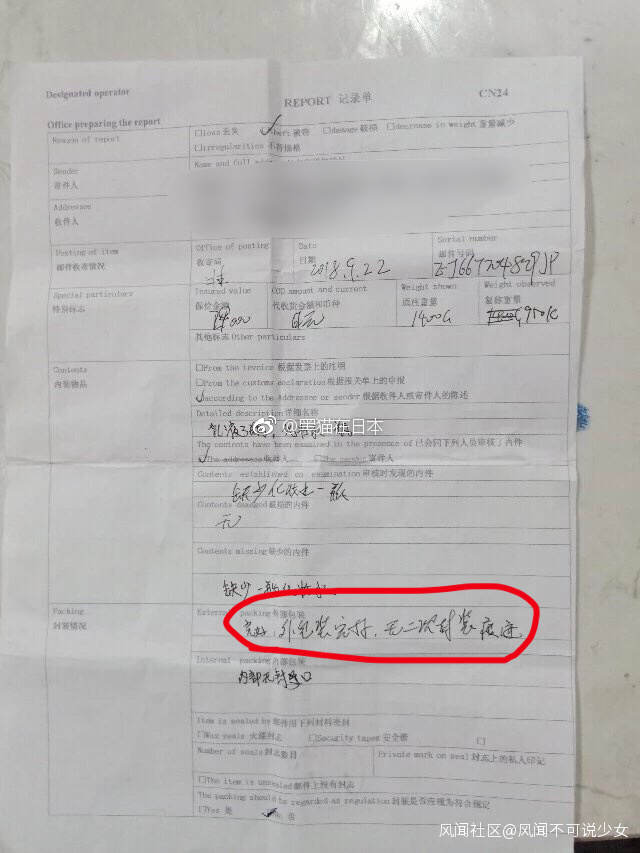 Designated operator
REPORT 记录单 CN24
Office preparing the report
Reason of report □loss 丢失 被窃 □damage 破损 □decrease in weight 重量减少
□irregularities
Name and full
Sender
寄件人
Addressee
收件人
Posting of item
邮件收寄情况
Office of posting
收寄局
Date
日期
2018.9.22
Serial number
邮件号码
Special particulars
特别标志
Insured value
保价金额
COD amount and current
代收货价额和币种
日元
Weight shown
原注重量
1400G
Weight observed
复称重量
其他标志 Other particulars
Contents
内装物品
□From the invoice 根据发票上的注明
□From the customs declaration 根据报关单上的申报
According to the Addressee or sender 根据收件人或寄件人的陈述
Detailed description 详细名称
@黑猫在日本
The contents have been examined in the presence of 已会同下列人员审核了内件
The addressee 收件人 □The sender 寄件人
Contents established on examination 审核时发现的内件
缺少化妆水一瓶
Contents damaged 破损的内件
无
Contents missing 缺少的内件
缺少一瓶化妆水
Packing
封装情况
External packing 外部包装
完好，外包装完好，无二次封装痕迹
Internal packing 内部包装
内部无封口
Item is sealed by 邮件用下列材料夹封
□Wax seals 火漆封志 □Security tapes 安全册 □
Number of seals 封志数目
Private mark on seal 封志上的私人印记
□The item is unsealed 邮件上没有封志
The packing should be regarded as regulation 封装是否应视为符合规定
□Yes 是 否
风闻社区@风闻不可说少女